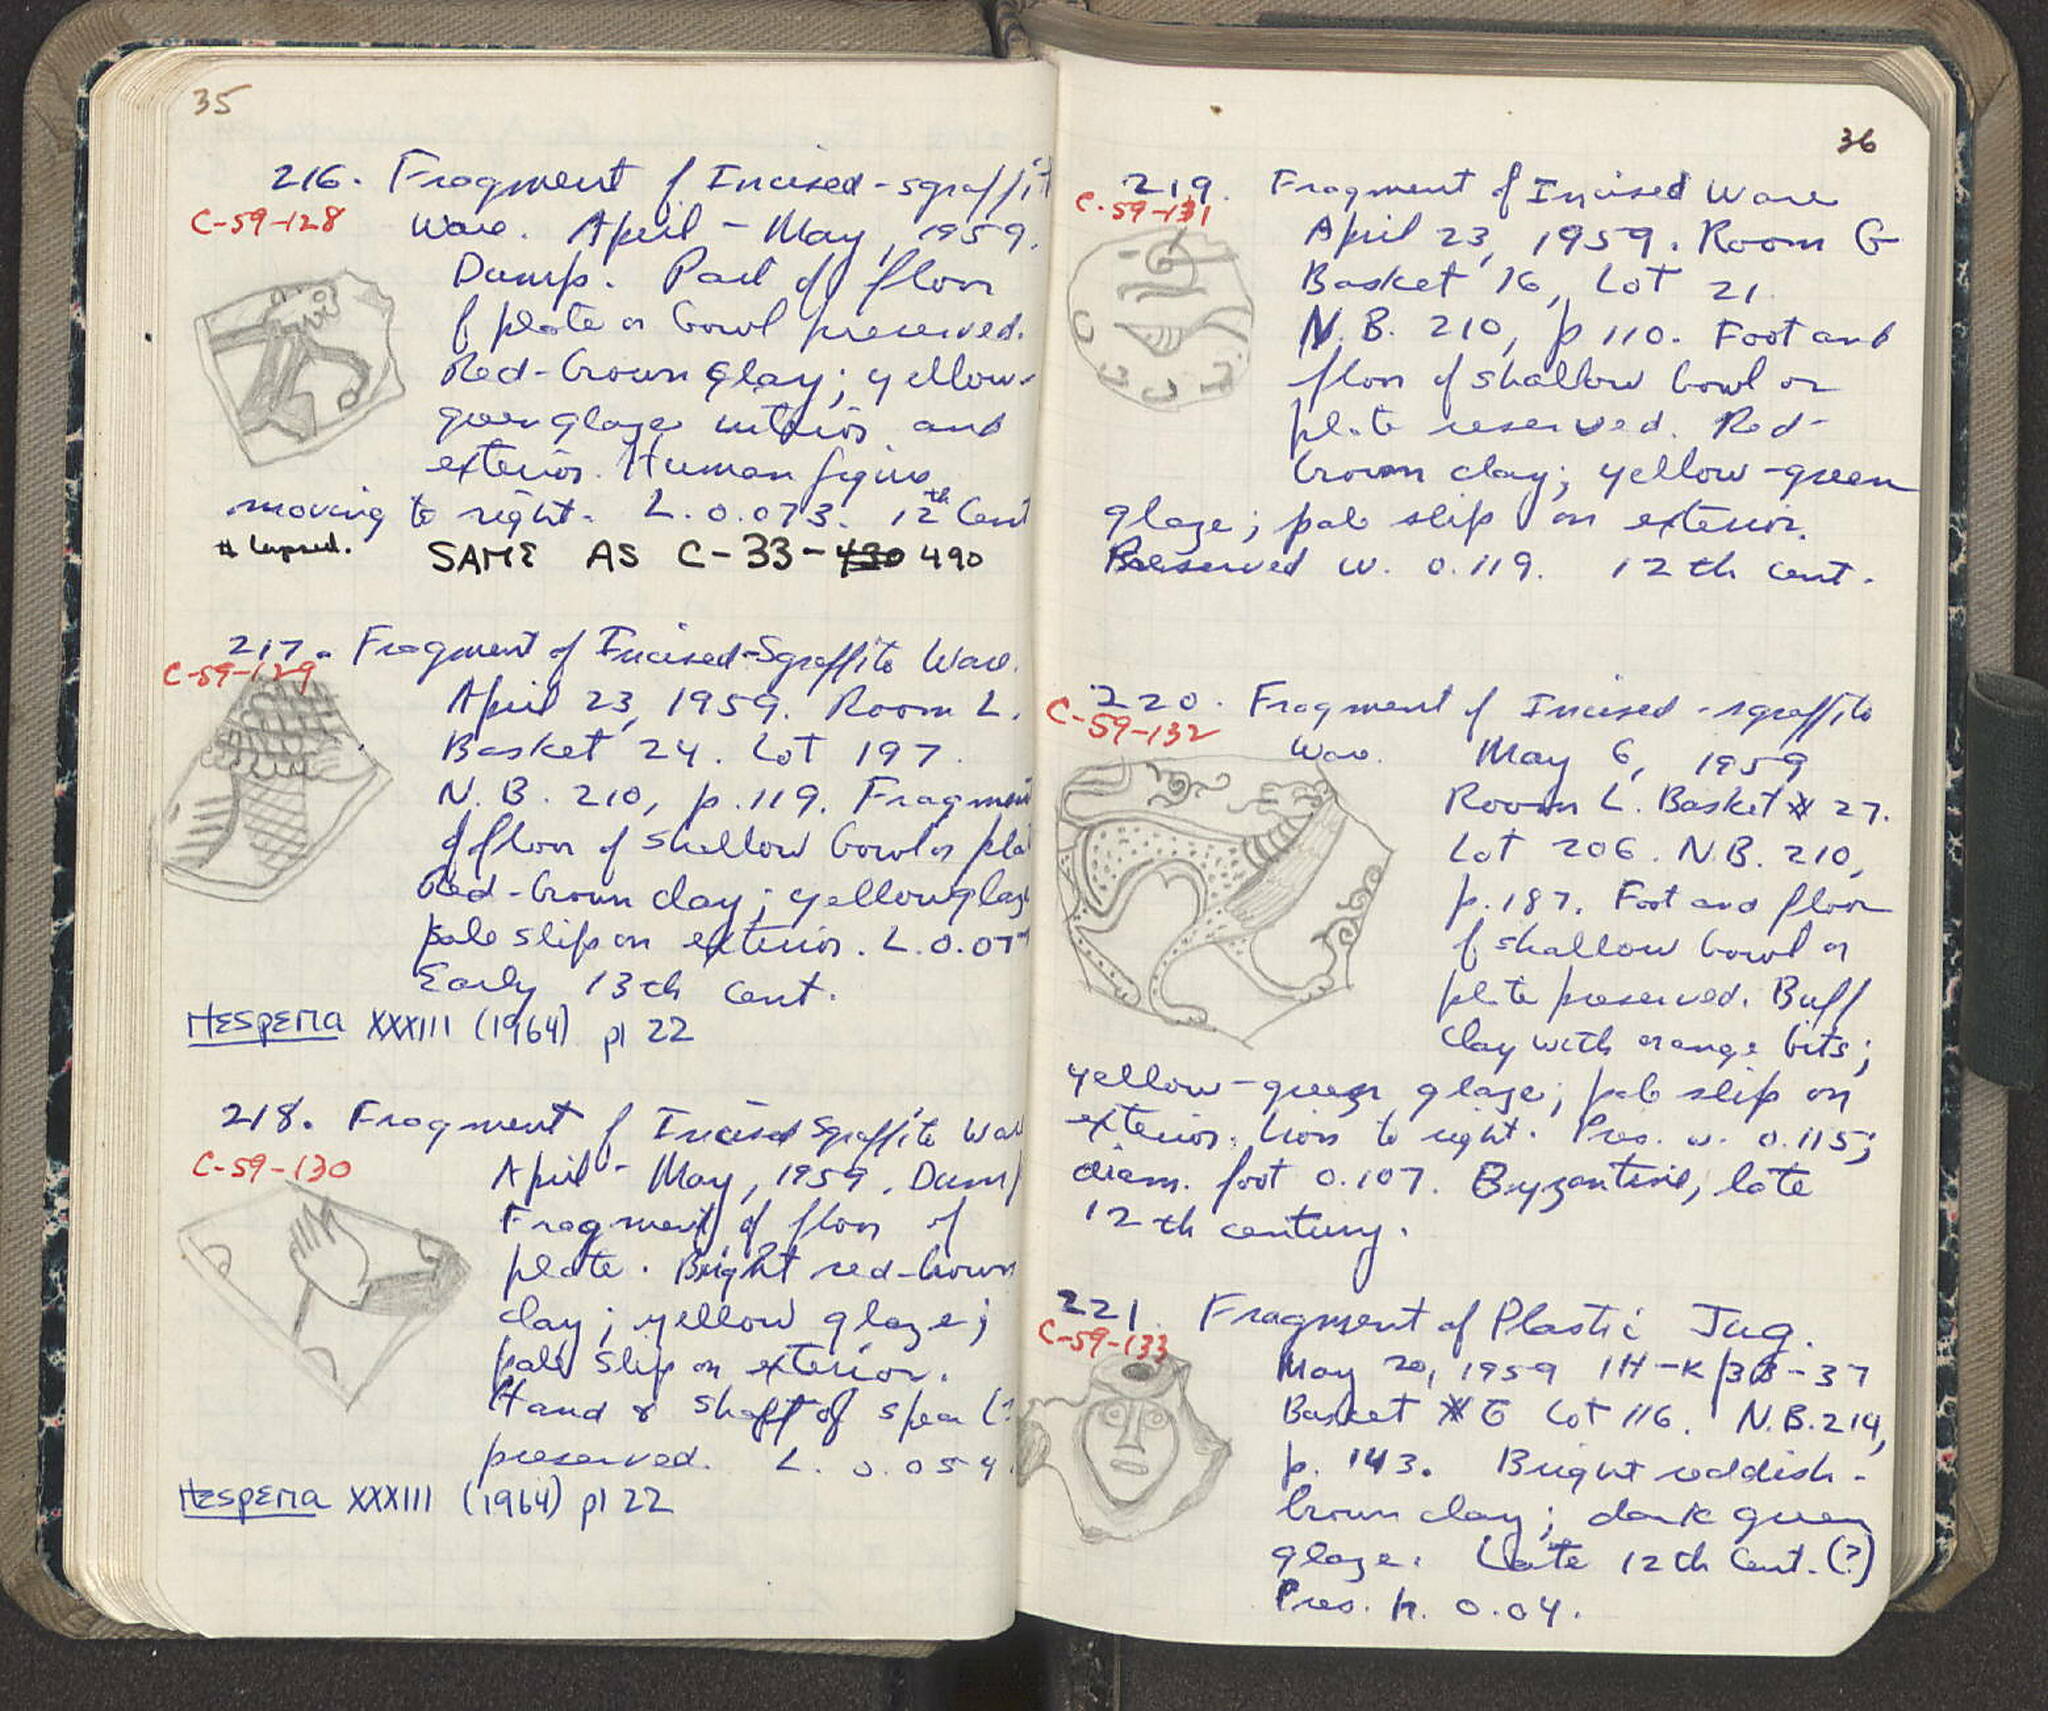 35
216. Fragment of Incised-sgraffit
C-59-128
Ware. April - May, 1959.
Dump. Part of floor
of plate or bowl preserved.
Red-brown glay; yellow-
green glaze interior and
exterior. Human figure
moving to right. L. 0.073. 12th Cent
# lapsed. SAME AS C-33-430 490
217. Fragment of Incised-Sgraffito Ware.
C-59-129
April 23, 1959. Room L.
Basket 24. Lot 197.
N.B. 210, p. 119. Fragment
of floor of shallow bowl or pla
Red-brown clay; yellow glaz
pale slip on exterior. L. 0.07
Early 13th cent.
HESPERIA XXXIII (1964) pl 22
218. Fragment of Incised Sgraffito War
C-59-130
April - May, 1959. Dump
Fragment of floor of
plate. Bright red-brown
clay; yellow glaze;
pale slip on exterior.
Hand & shaft of spear (?
preserved. L. 0.054.
HESPERIA XXXIII (1964) pl 22
36
219. Fragment of Incised Ware
C-59-131
April 23, 1959. Room G
Basket 16, Lot 21
N.B. 210, p 110. Foot and
floor of shallow bowl or
plate reserved. Red-
brown clay; yellow-green
glaze; pale slip on exterior.
Preserved w. 0.119. 12th cent.
220. Fragment of Incised-sgraffito
C-59-132
Ware. May 6, 1959
Room L. Basket # 27.
Lot 206. N.B. 210,
p. 187. Foot and floor
of shallow bowl or
plate preserved. Buff
clay with orange bits;
yellow-green glaze; pale slip on
exterior. Lion to right. Pres. w. 0.115;
diam. foot 0.107. Byzantine, late
12th century.
221. Fragment of Plastic Jug.
C-59-133
May 20, 1959 1H-K/33-37
Basket # 6 Lot 116. N.B. 214,
p. 143. Bright reddish-
brown clay; dark green
glaze. Late 12th Cent. (?)
Pres. h. 0.04.